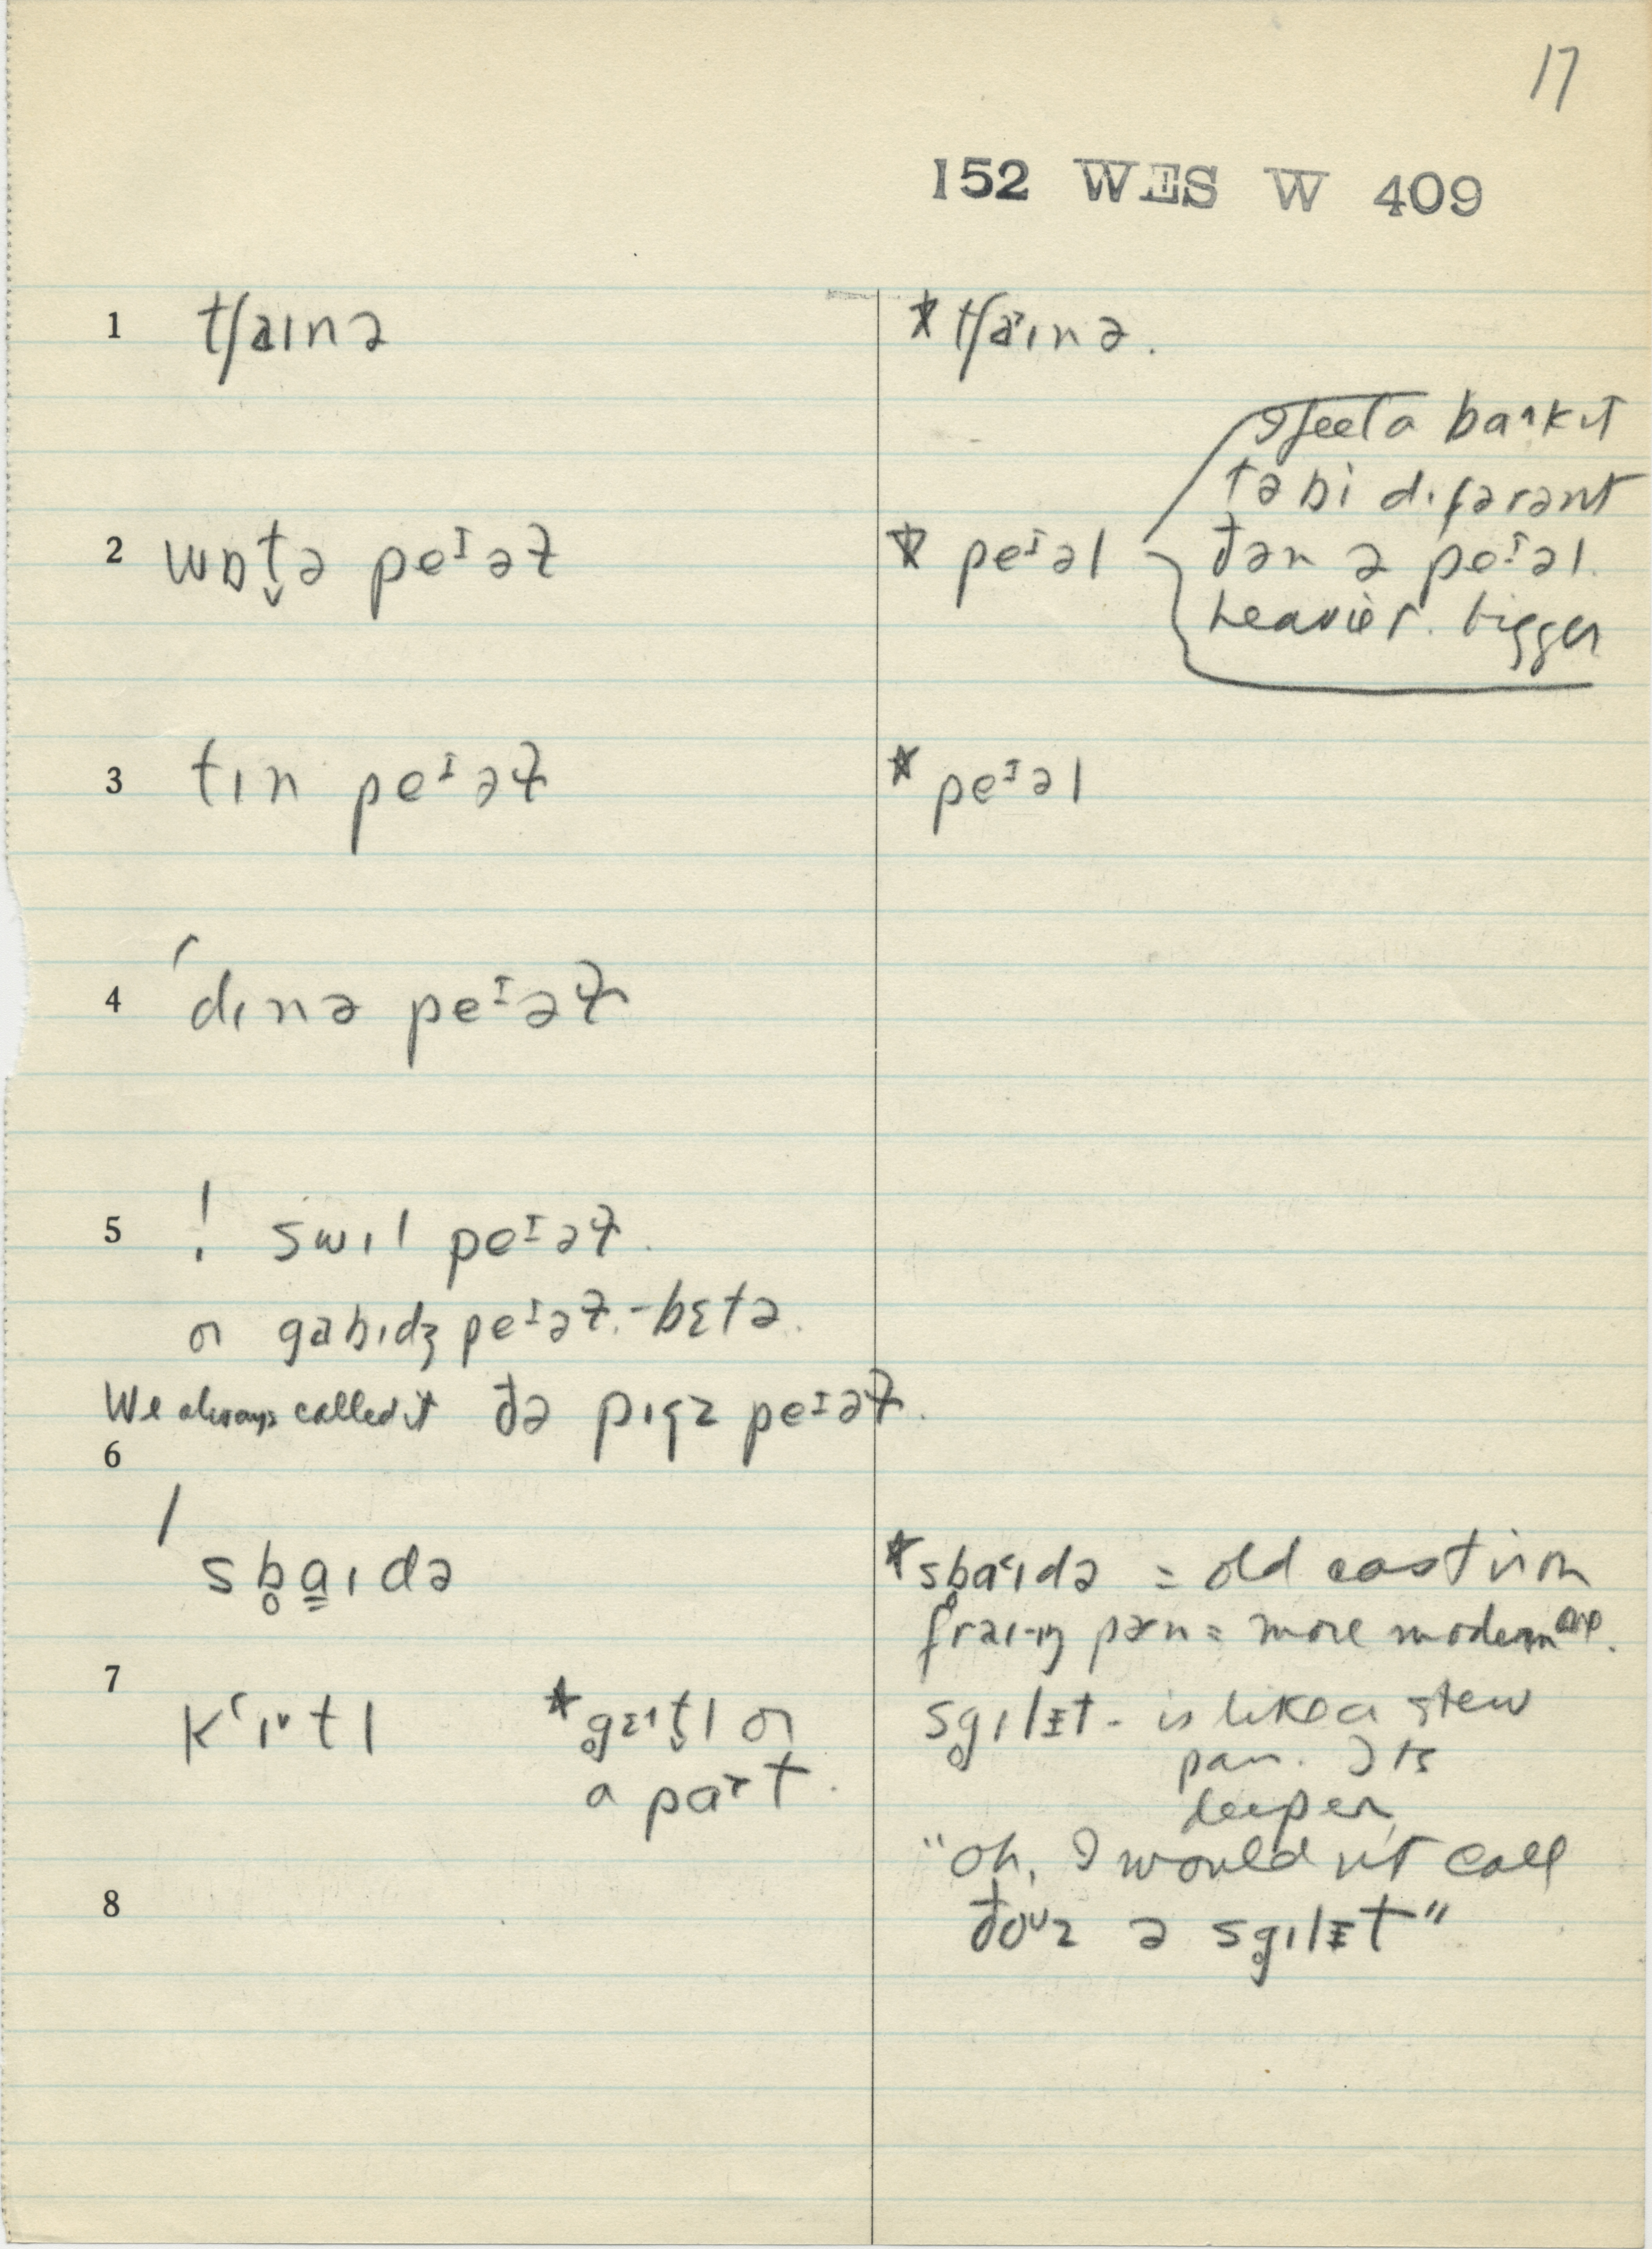 17
152 WES W 409
1 tʃaɪnə
★ tʃaˑɪnə.
2 wɒt̬ə peᴵəɫ
★ peᴵəl
I feel a
təbi dɪfərənt
ðən ə peᴵəl.
heavier. bigger
3 tɪn peᴵəɫ
★ peᴵəl
4 ˊdɪnə peᴵəɫ
5 ! swɪl peᴵəɫ.
or gabɪdʒ peᴵəɫ. - bɛtə.
We always called it ðə pɪgz peᴵəɫ.
6 / sb̥a̳ɪdə
★ sb̥aɪdə = old cast iron
pæn = more modern one.
7 kʻɪtl
★ or
a paˑt.
sg̥ɪlɪt - is like a stew
pan. Its
deeper
8 "oh, I would n't call
ðoᶷz ə sg̥ɪlɪt"